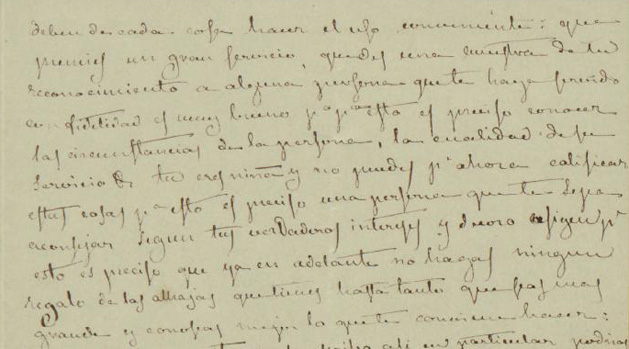 deben de cada cosa hacer el uso conveniente: que
premies un gran servicio, que des una muestra de tu
reconocimiento a alguna persona que te haya servido
con fidelidad es muy bueno pª pª esto es preciso conocer
las circunstancias de la persona, la cualidad de su
servicio & tu eres niña y no puedes pʳ ahora calificar
estas cosas pª esto es preciso una persona que te sepa
aconsejar segun tus verdaderos intereses y decoro pʳ
esto es preciso que ya en adelante no hagas ningun
regalo de las alhajas que tienes hasta tanto que seas mas
grande y conozcas mejor lo que te conviene hacer:
en particular podrias